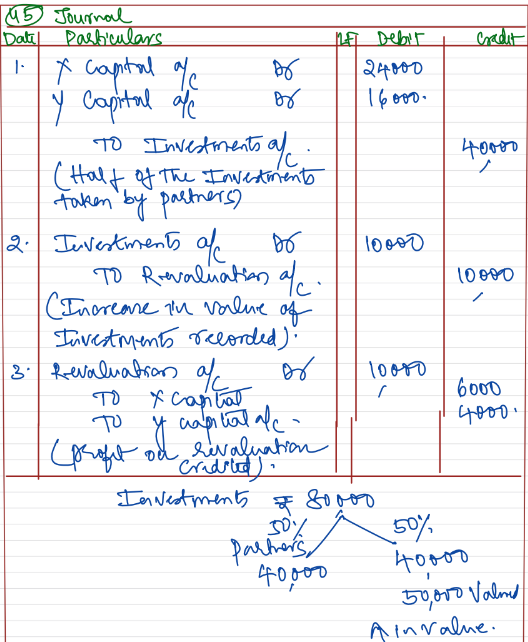 45 Journal
Date Particulars LF Debit Credit
1. X Capital a/c Dr 24000
Y Capital a/c Dr 16000.
TO Investments a/c. 40000
(Half of The Investments
taken by partners)
2. Investments a/c Dr 10000
TO Revaluation a/c. 10000
(Increase in value of
Investments recorded).
3. Revaluation a/c Dr 10000
TO X capital 6000
TO Y capital a/c - 4000.
(profit on revaluation
credited).
Investments ₹ 80000
50% 50%
Partners 40000
40,000
50,000 Valued
↑ in value.